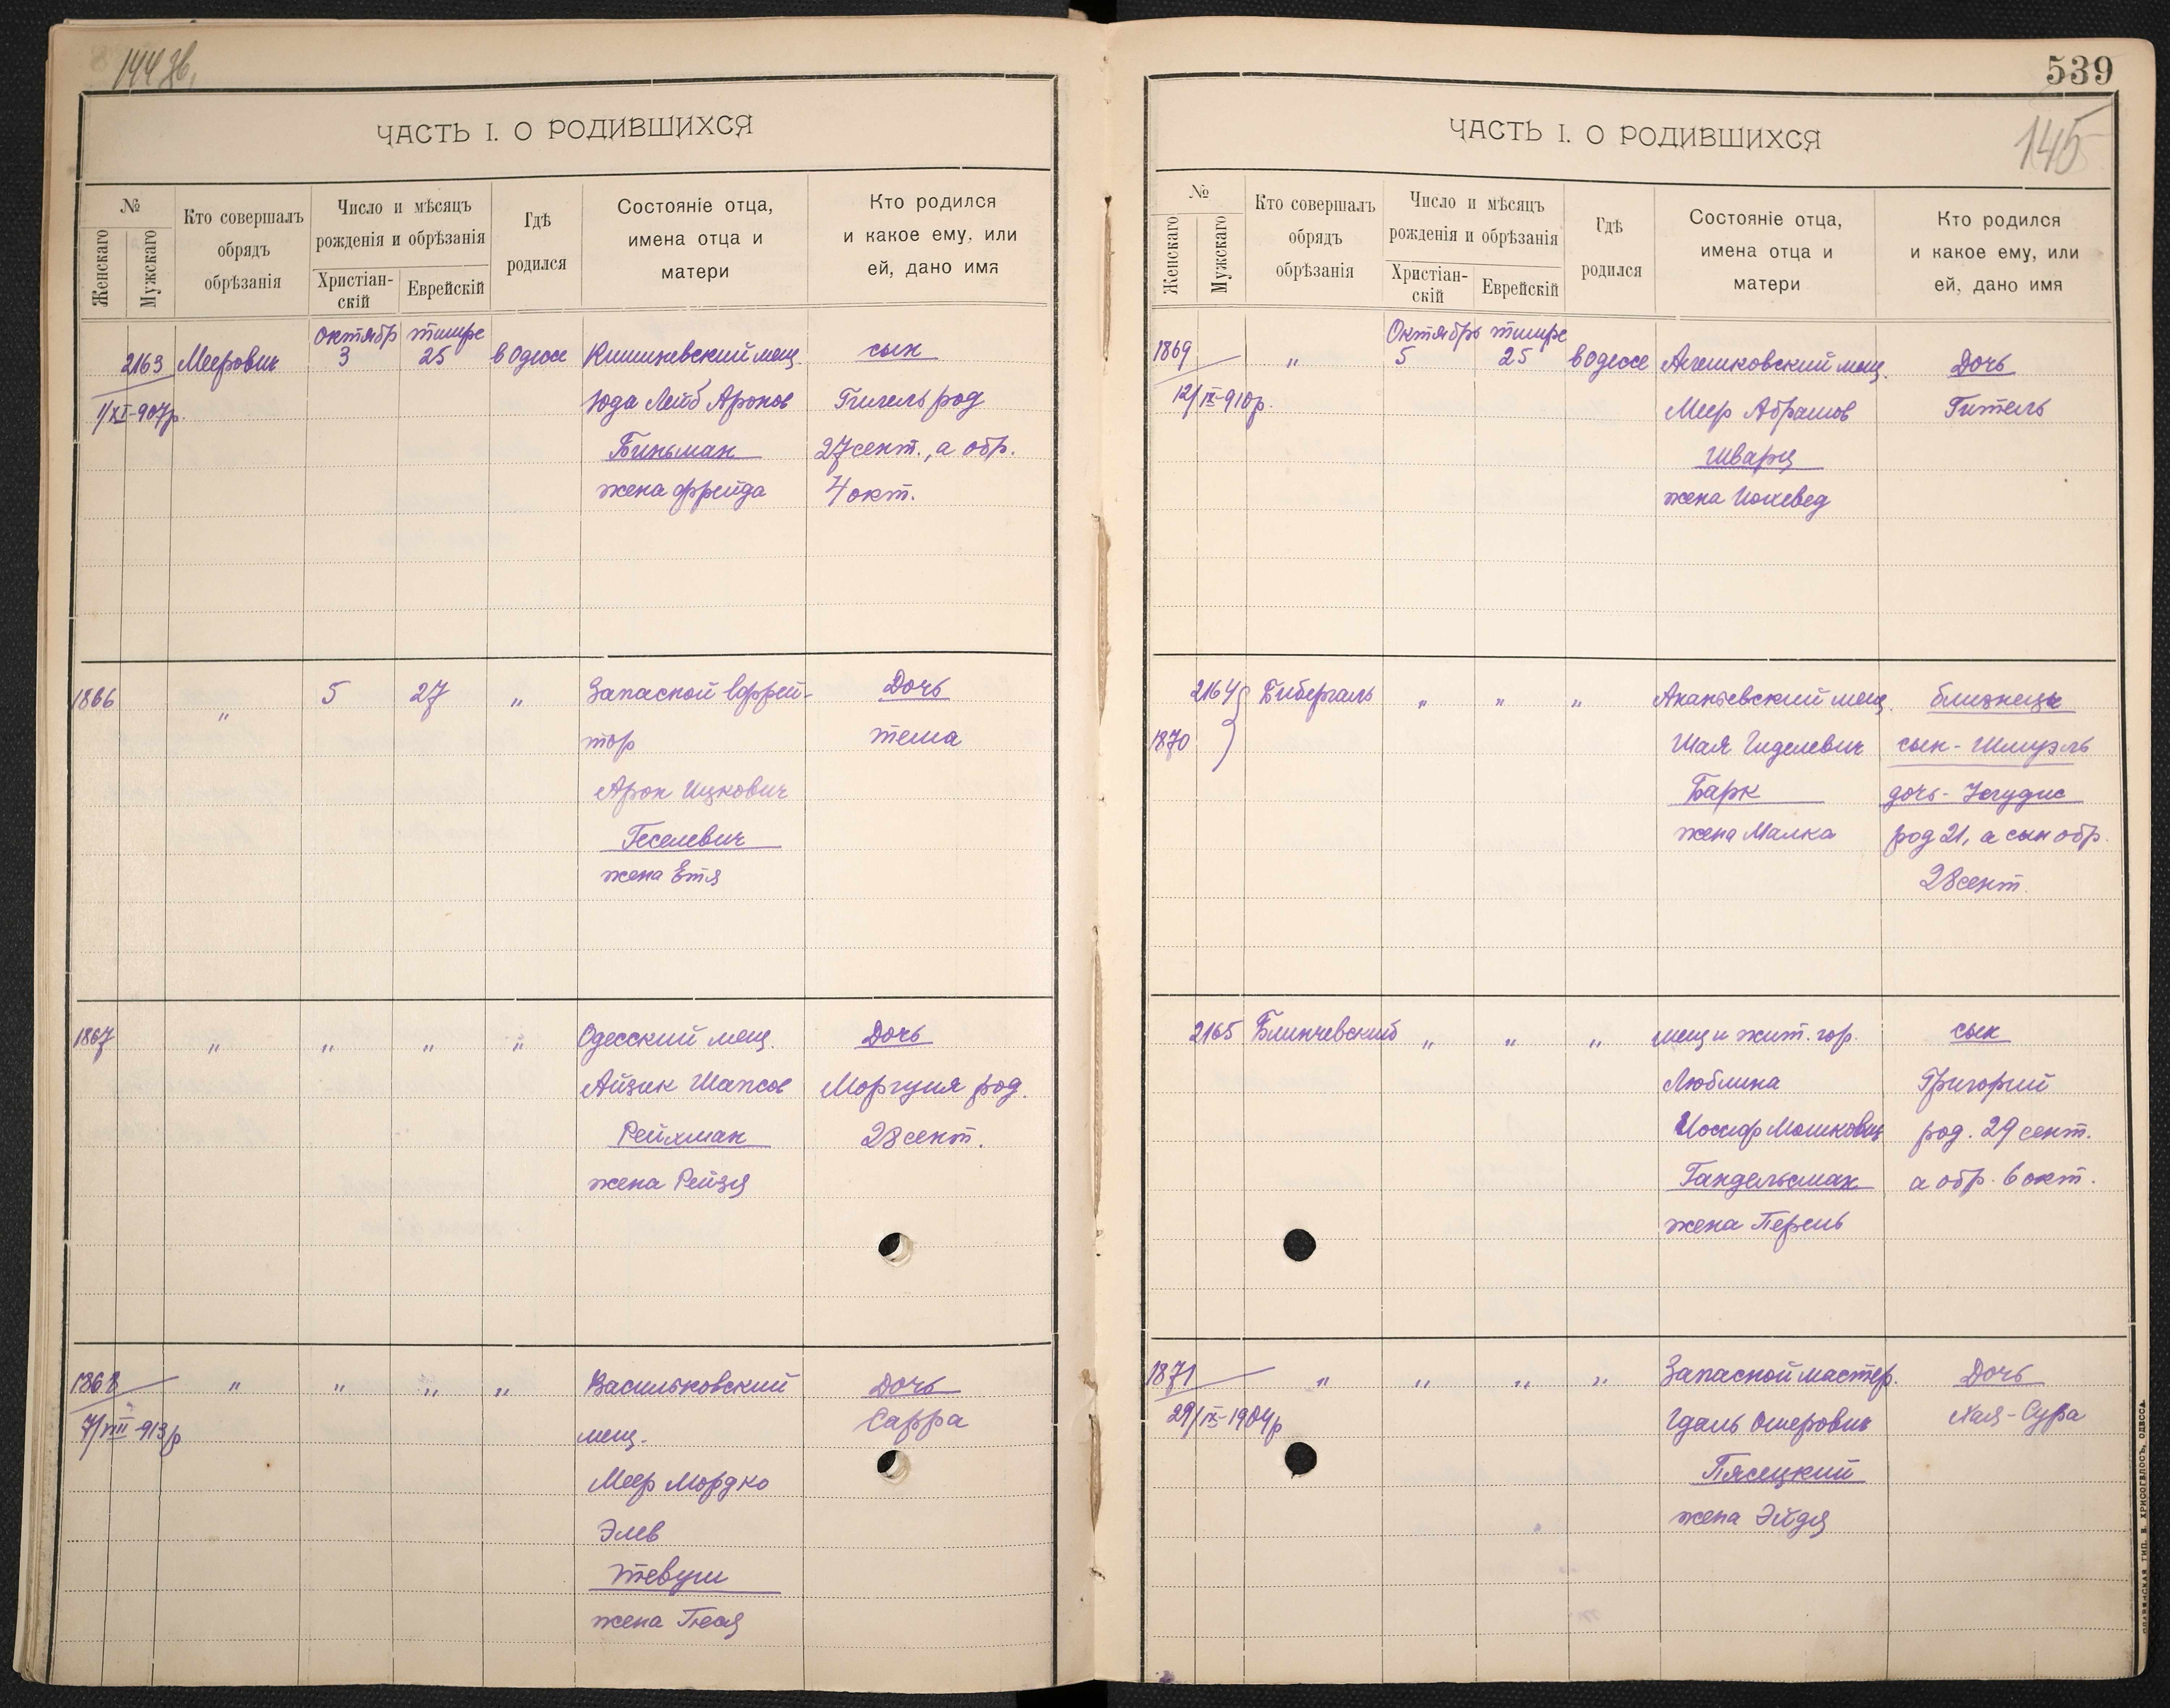 144 зв.
ЧАСТЬ I. О РОДИВШИХСЯ
№
Женскаго
Мужскаго
Кто совершалъ
обрядъ
обрѣзанія
Число и мѣсяцъ
рожденія и обрѣзанія
Христіан-
скій
Еврейскій
Гдѣ
родился
Состояніе отца,
имена отца и
матери
Кто родился
и какое ему, или
ей, дано имя
Октябр тишре
2163 Меерович 3 25 в Одессе Кишиневский мещ. сын
1/XI-907р. Юда Лейб Аронов род
Биньман 27 сент., а обр.
жена Фрейда 4 окт.
1866 " 5 27 " Запасной ефрей- Дочь
тор тема
Арон Ицкович
Геселевич
жена Етя
1867 " " " " Одесский мещ. Дочь
Айзик Шапсов Моргуля род.
Рейхман 28 сент.
жена Рейзя
1868 " " " " Васильковский Дочь
7/VIII-913р мещ. Сарра
Меер Мордко
Элев
Тевуш
жена Геся
539
145
ЧАСТЬ I. О РОДИВШИХСЯ
№
Женскаго
Мужскаго
Кто совершалъ
обрядъ
обрѣзанія
Число и мѣсяцъ
рожденія и обрѣзанія
Христіан-
скій
Еврейскій
Гдѣ
родился
Состояніе отца,
имена отца и
матери
Кто родился
и какое ему, или
ей, дано имя
Октябрь тишре
1869 " 5 25 в Одессе Алешковский мещ. Дочь
12/IX-910р. Меер Абрамов Гитель
Шварц
жена Иохевед
2164 Бибергаль " " " Ананьевский мещ. близнецы
1870 Шая Гиделевич сын - Шмуэль
Барк дочь -
жена Малка род 21, а сын обр.
28 сент.
2165 Блинчевский " " " мещ и жит. гор. сын
Люблина Григорий
Иосиф Мошкович род. 29 сент.
Гандельсман а обр. 6 окт.
жена Перель
1871 " " " " Запасной мастер. Дочь
29/IX-1904р Гдаль Ошерович Хая-Сура
Пясецкий
жена Эйдя